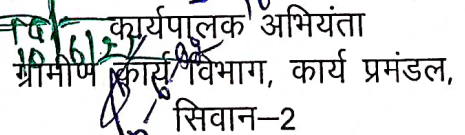 कार्यपालक अभियंता
ग्रामीण कार्य विभाग, कार्य प्रमंडल,
सिवान–2